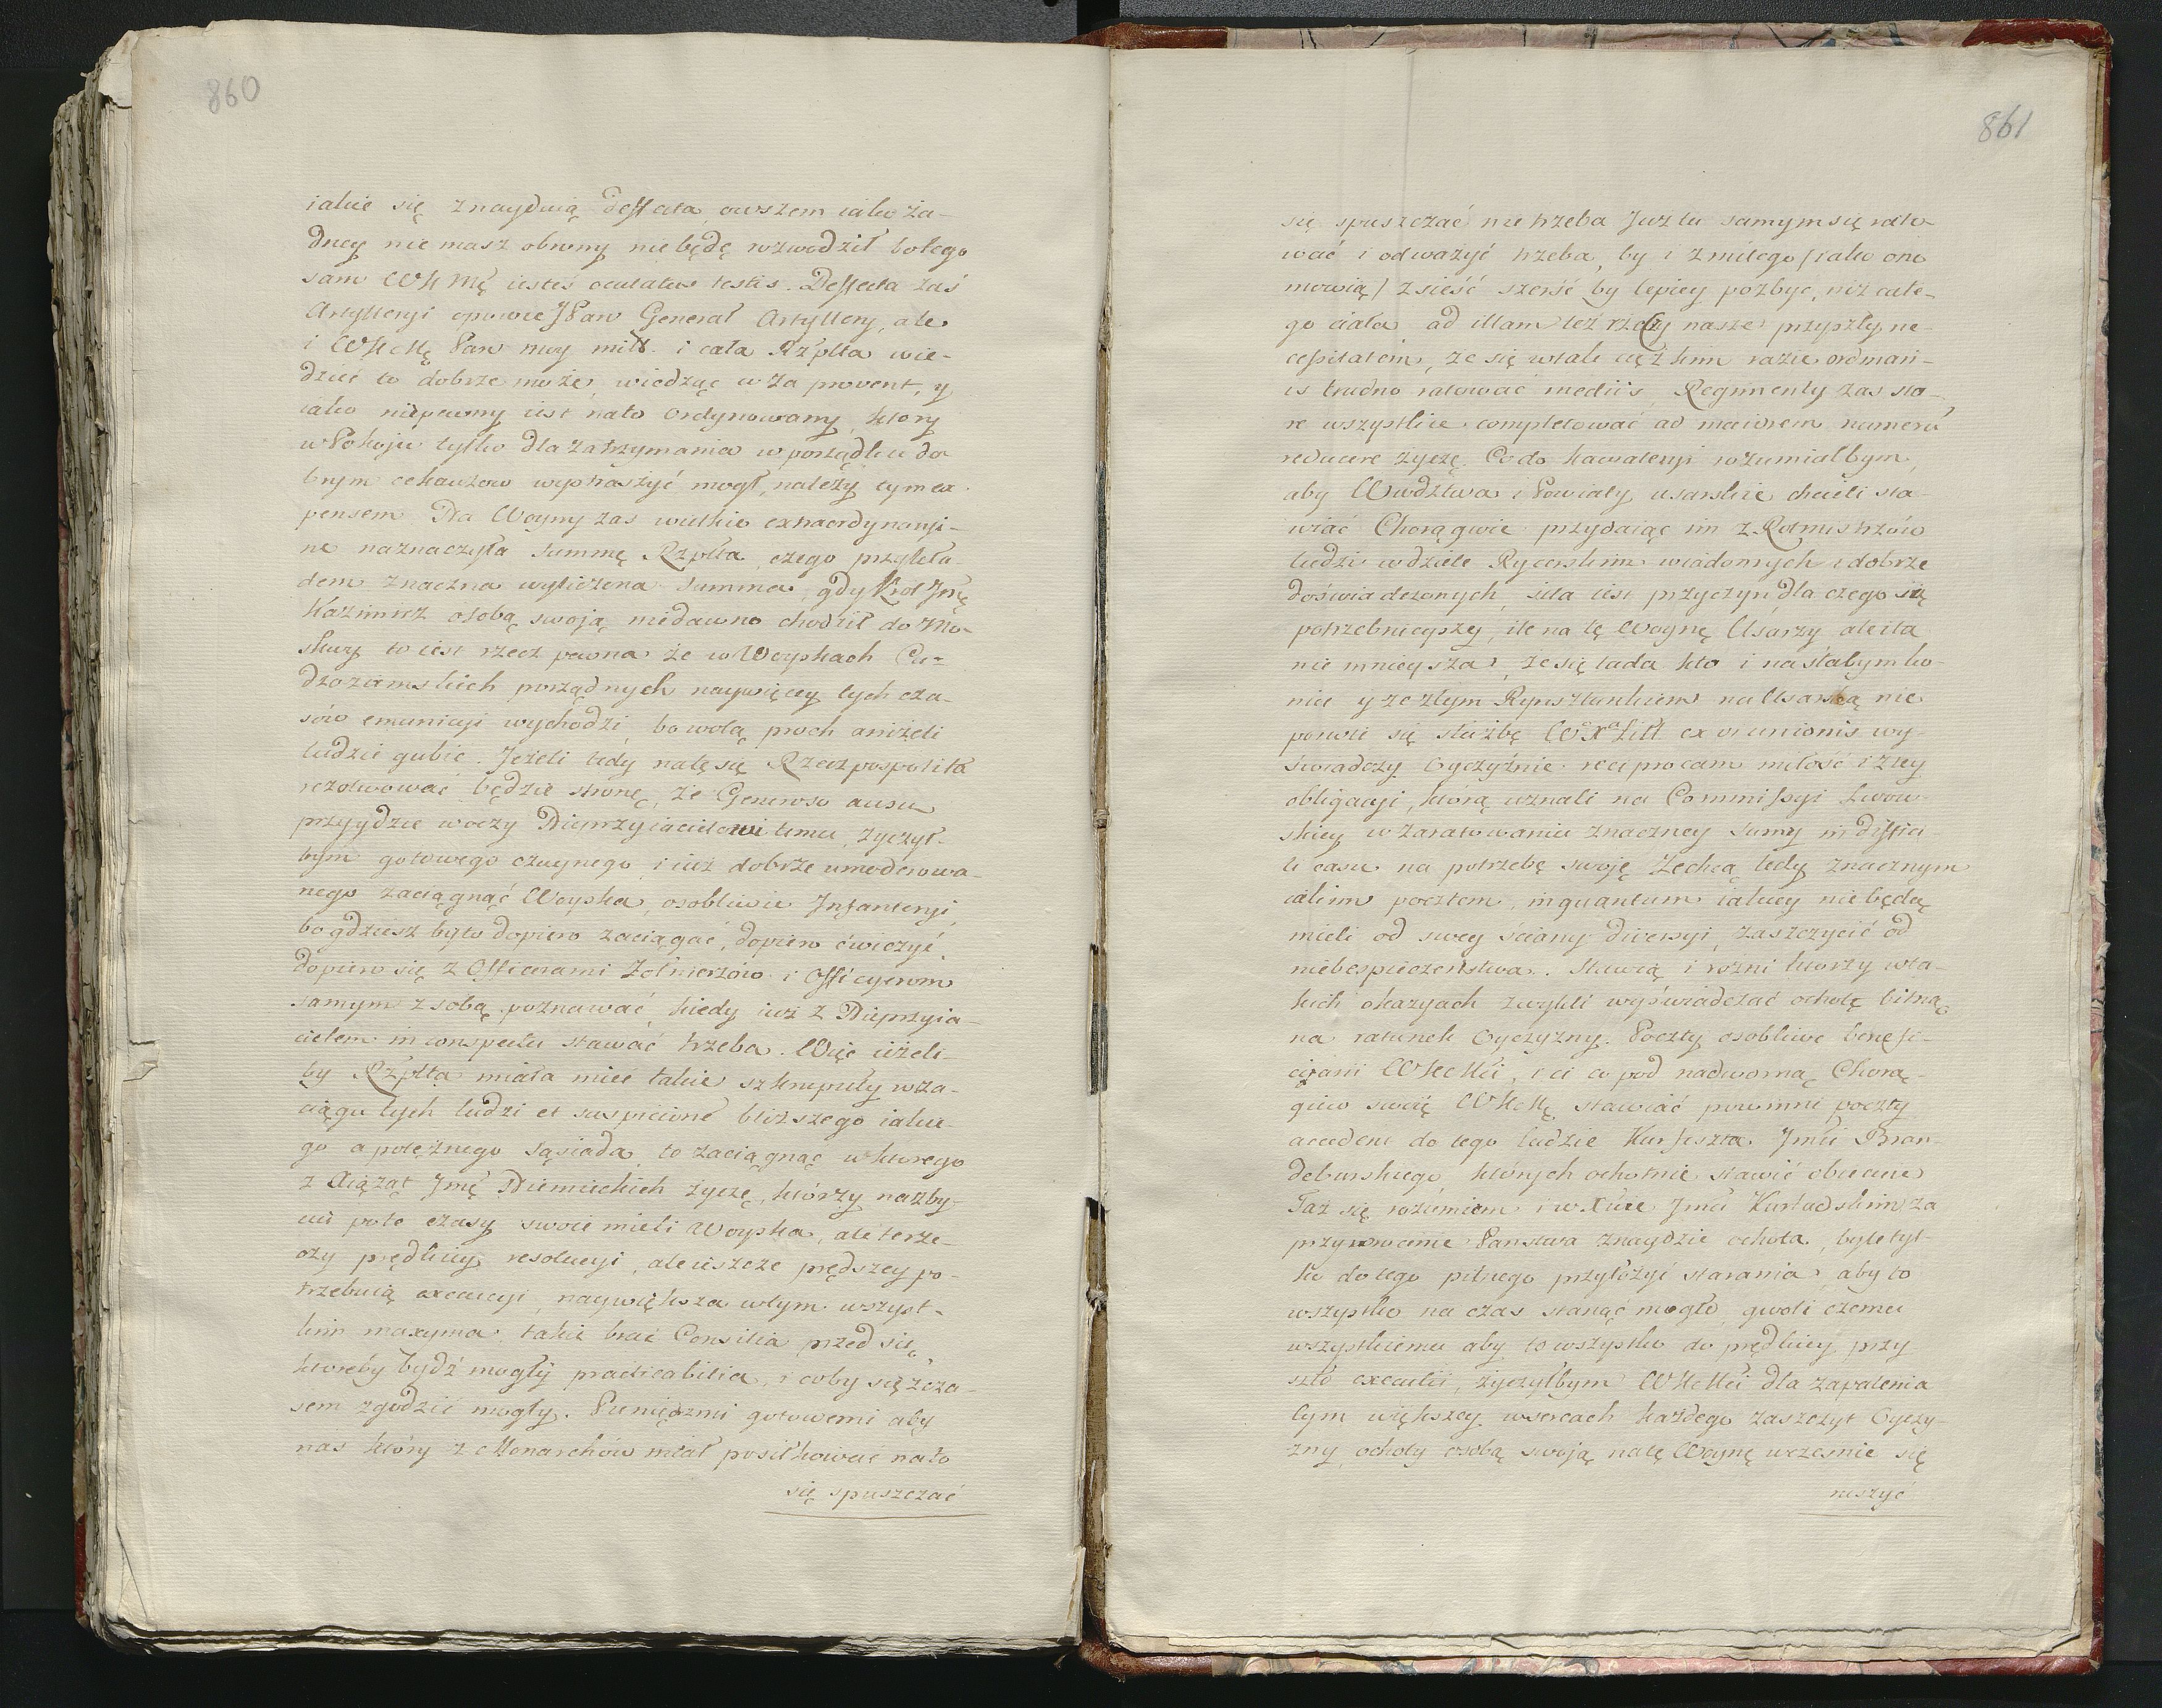 860
iakie się znayduią deffecta, owszem iako ża-
dney nie masz obrony nie będę rozwodził bo tego
sam WKMę iesteś oculatus testis. Deffecta zaś
Artylleryi opowie JPan Generał Artyllery, ale
i WKMę Pan moy miłł. i cała Rzplta wie-
dzieć to dobrze może, wiedząc w za provent, y
iako niepewny iest na to ordynowany, ktory
w Pokoju tylko dla zatrzymania w porządku do
brym cekauzow wystraszyć mogł, należytym ex-
pensem. Dla Woyny zas wielkie extraordynaryi-
ne naznaczyła summę Rzplta, czego przykła-
dem znaczna wyliczona summa, gdy Krol Jmę
Kazimierz osobą swoją niedawno chodził do Mo-
skwy to iest rzecz pewna że w Woyskach Cu-
dzoziemskich porządnych naywięcey tych cza-
sów emunicyi wychodzi, bo wolą proch aniżeli
ludzie gubić. Jeżeli tedy na tę się Rzeczpospolita
rezolwować będzie stronę, że Generoso ausu
przyydzie w oczy Nieprzyiacielowi temu, życzył-
bym gotowego czuynego i iuż dobrze umoderowa-
nego zaciągnąć Woyska, osobliwie Infanteryi,
bo gdziesz by to dopiero zaciągać, dopiero ćwiczyć,
dopiero się z Officerami Żołnierzow i Officyerom
samym z sobą poznawać, kiedy iuż z Nieprzyia-
cielem in conspectu stawać trzeba. Więc ieżeli-
by Rzplta miała mieć takie szkrupuły w za-
ciągu tych ludzi et suspicione bliższego iakie-
go a potężnego sąsiada, to zaciągnąć u ktorego
z Xiążąt Jmę Niemieckich życzę, którzy nazby-
ciu po te czasy swoie mieli Woyska, ale te rze-
czy prędkiey resolucyi, ale ieszcze prędszey po-
trzebuią execucyi, naywiększa w tym wszyst-
kim maxyma, takie brać Consilia przed się,
ktoreby bydź mogły practicabilia, i coby się z cza-
sem zgodzić mogły. Pieniędzmi gotowemi aby
nas który z Monarchów miał posiłkować na to
się spuszczać
861
się spuszczać nie trzeba Juz tu samym się rato-
wać i odważyć trzeba, by i z miłego /: iako ono
mowią / z sieść szerść by lepiey pozbyc, niż całe-
go ciała ad illam też rzeczy nasze przyszły ne-
cessitatem, że się w tak ciężkim razie ordinari-
is trudno ratować mediis, Regimenty zas sta-
re wszystkie completować ad maiorem numerũ
reducere życzę. Co do kawaleryi rozumiałbym,
aby Wwdztwa i Powiaty usarskie chcieli sta-
wiać Chorągwie przydaiąc im z Rotmistrzów
ludzi w dziele Rycerskim wiadomych i dobrze
doświadczonych, siła iest przyczyn dla czego są
potrzebnieyszy, ile na tę Woynę Usarzy, ale i ta
nie mnieysza, że się lada kto i na słabym ko-
niu y ze złym Rynsztunkiem na Usarską nie
porwie się służbę WXaLitt ex vi unionis wy-
świadczy Oyczyźnie reciprocam miłość i z tey
obligacyi, którą uznali na Commissyi Lwow-
skiey w zaratowaniu znaczney sumy in diffici-
li casu na potrzebę swoję Zechcą tedy znacznym
iakim pocztem, inquantum iakiey nie będą
mieli od swey ściany diversyi, zaszczycić od
niebespieczeństwa. Stawią i rożni ktorzy w ta-
kich okazyach zwykli wyświadczać ochotę bitną
na ratunek Oyczyzny. Poczty osobliwe benefi-
ciarii WKMci, i ci co pod nadworną Chorą-
giew swoię WKMę stawiać powinni poczty
accedent do tego ludzie Kurfirszta Jmci Bran-
deburskiego, których ochotnie stawić obiecuie
Taż się rozumiem i w Xciu Jmci Kurlandskim za
przywrocenie Panstwa znaydzie ochota, byle tyl-
ko do tego pilnego przyłożyć starania, aby to
wszystko na czas stanąć mogło, gwoli czemu
wszystkiemu aby to wszystko do prędkiey przy
szło execucii, życzyłbym WKMci dla zapalenia
tym większey w sercach każdego zaszczyt Oyczy-
zny ochoty osobą swoją na tę Woynę wczesnie się
ruszyć